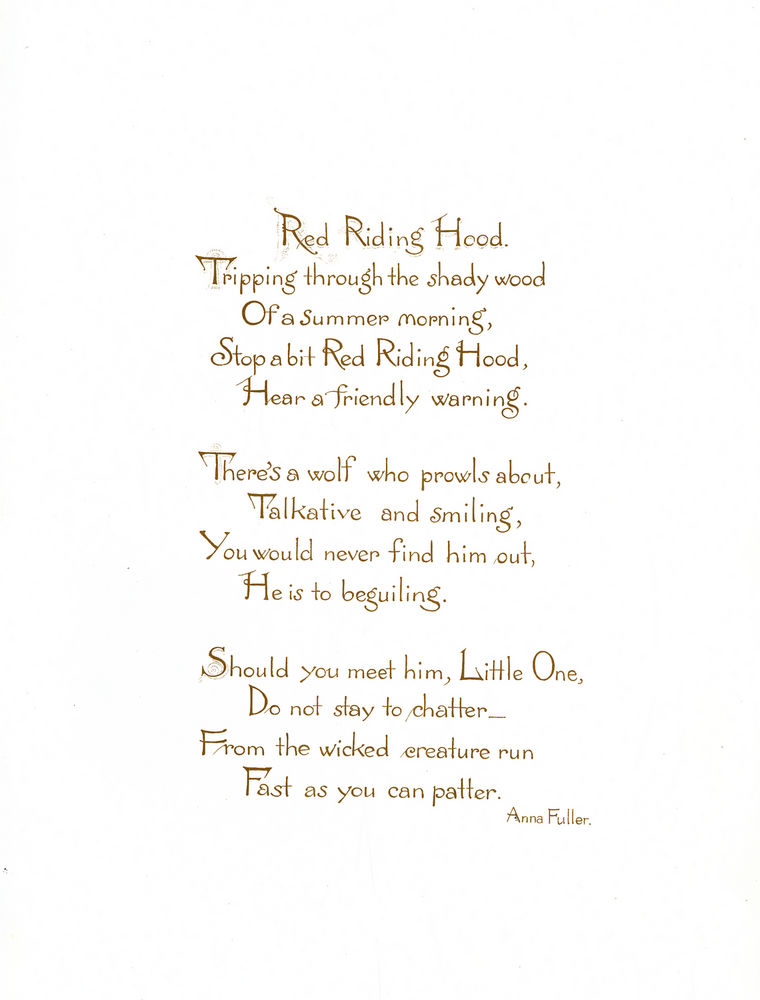 Red Riding Hood.
Tripping through the shady wood
Of a Summer morning,
Stop a bit Red Riding Hood,
Hear a friendly warning.
There's a wolf who prowls about,
Talkative and smiling,
You would never find him out,
He is to beguiling.
Should you meet him, Little One,
Do not stay to chatter—
From the wicked creature run
Fast as you can patter.
Anna Fuller.